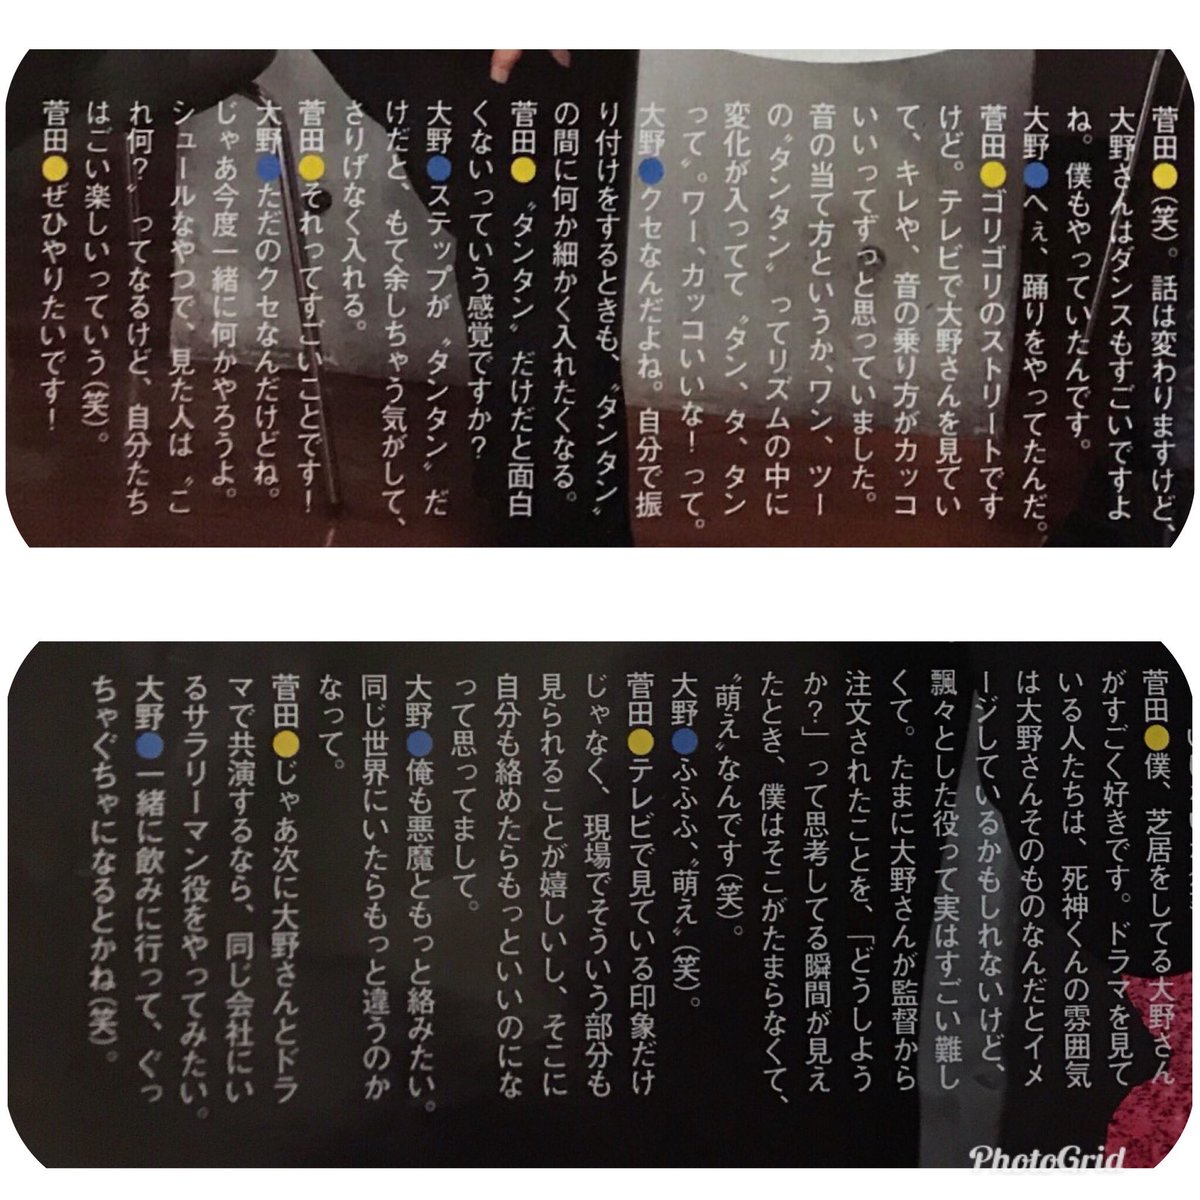 菅田●(笑)。話は変わりますけど、
大野さんはダンスもすごいですよ
ね。僕もやっていたんです。
大野●へぇ、踊りをやってたんだ。
菅田●ゴリゴリのストリートです
けど。テレビで大野さんを見てい
て、キレや、音の乗り方がカッコ
いいってずっと思っていました。
音の当て方というか、ワン、ツー
の〝タンタン〟ってリズムの中に
変化が入ってて〝タン、タ、タン
って〟。ワー、カッコいいな！って。
大野●クセなんだよね。自分で振
り付けをするときも、〝タンタン〟
の間に何か細かく入れたくなる。
菅田●〝タンタン〟だけだと面白
くないっていう感覚ですか？
大野●ステップが〝タンタン〟だ
けだと、もて余しちゃう気がして、
さりげなく入れる。
菅田●それってすごいことです！
大野●ただのクセなんだけどね。
じゃあ今度一緒に何かやろうよ。
シュールなやつで、見た人は〝こ
れ何？〟ってなるけど、自分たち
はごい楽しいっていう(笑)。
菅田●ぜひやりたいです！
菅田●僕、芝居をしてる大野さん
がすごく好きです。ドラマを見て
いる人たちは、死神くんの雰囲気
は大野さんそのものなんだとイメ
ージしているかもしれないけど、
飄々とした役って実はすごい難し
くて。たまに大野さんが監督から
注文されたことを、「どうしよう
か？」って思考してる瞬間が見え
たとき、僕はそこがたまらなくて、
〝萌え〟なんです(笑)。
大野●ふふふ、〝萌え〟(笑)。
菅田●テレビで見ている印象だけ
じゃなく、現場でそういう部分も
見られることが嬉しいし、そこに
自分も絡めたらもっといいのにな
って思ってまして。
大野●俺も悪魔ともっと絡みたい。
同じ世界にいたらもっと違うのか
なって。
菅田●じゃあ次に大野さんとドラ
マで共演するなら、同じ会社にい
るサラリーマン役をやってみたい。
大野●一緒に飲みに行って、ぐっ
ちゃぐちゃになるとかね(笑)。
PhotoGrid